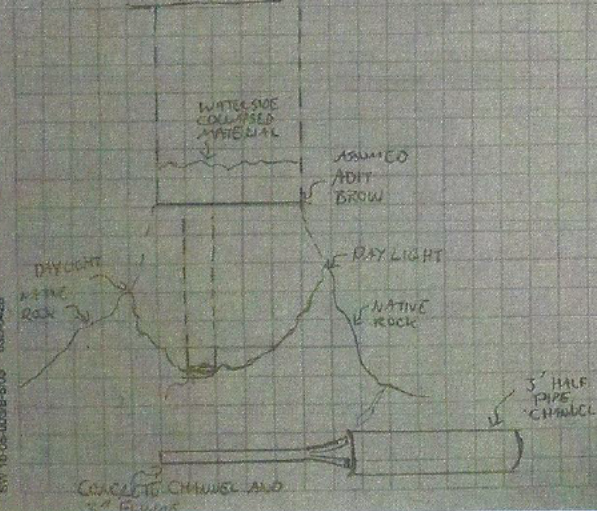 WATERSIDE
COLLAPSED
MATERIAL
ASSUMED
ADIT
BROW
DAYLIGHT
NATIVE
ROCK
DAYLIGHT
NATIVE
ROCK
3' HALF
PIPE
CHANNEL
CONCRETE CHANNEL AND